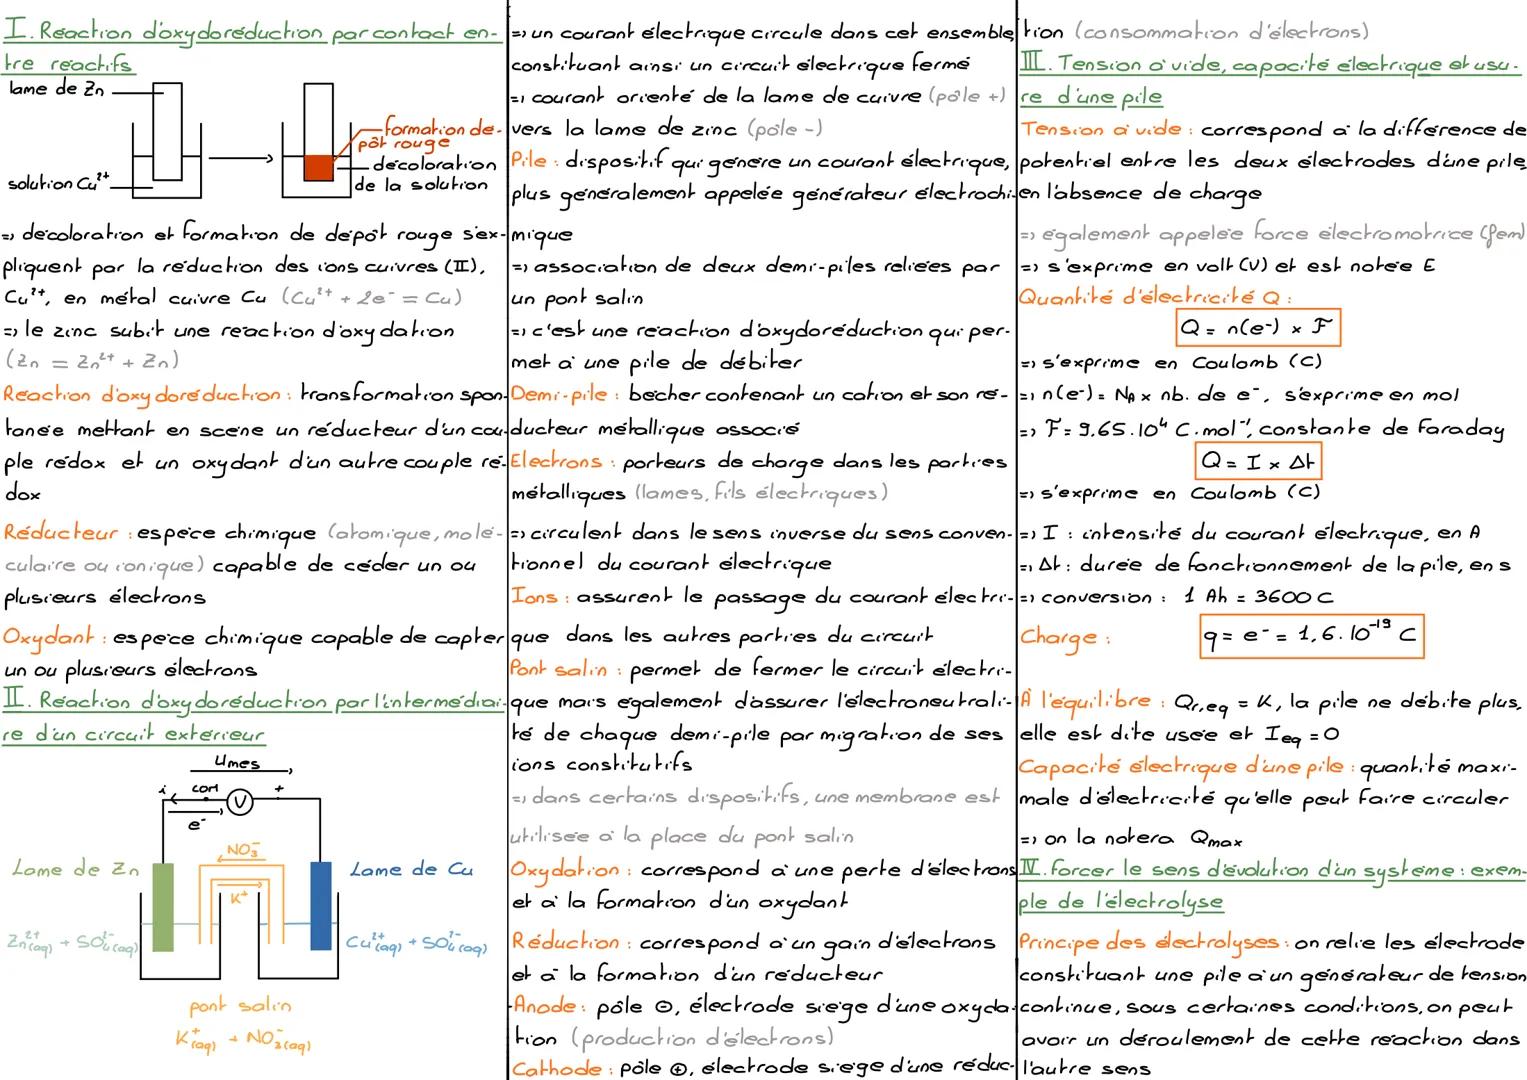 I. Réaction d'oxydoréduction par contact en-
tre réactifs
lame de Zn
solution Cu²⁺
formation dé-
pôt rouge
décoloration
de la solution
=> décoloration et formation de dépôt rouge s'ex-
pliquent par la réduction des ions cuivres (II),
Cu²⁺, en métal cuivre Cu (Cu²⁺ + 2e⁻ = Cu)
=> le zinc subit une réaction d'oxydation
(Zn = Zn²⁺ + Zn)
Réaction d'oxydoréduction : transformation spon-
tanée mettant en scène un réducteur d'un cou-
ple rédox et un oxydant d'un autre couple ré-
dox
Réducteur : espèce chimique (atomique, molé-
culaire ou ionique) capable de céder un ou
plusieurs électrons
Oxydant : espèce chimique capable de capter
un ou plusieurs électrons
II. Réaction d'oxydoréduction par l'intermédiai-
re d'un circuit extérieur
Umes
i com V +
e⁻
NO₃⁻
K⁺
Lame de Zn
Lame de Cu
Zn²⁺(aq) + SO₄²⁻(aq)
Cu²⁺(aq) + SO₄²⁻(aq)
pont salin
K⁺(aq) + NO₃⁻(aq)
=> un courant électrique circule dans cet ensemble,
constituant ainsi un circuit électrique fermé
=> courant orienté de la lame de cuivre (pôle +)
vers la lame de zinc (pôle -)
Pile : dispositif qui génère un courant électrique,
plus généralement appelée générateur électrochi-
mique
=> association de deux demi-piles reliées par
un pont salin
=> c'est une réaction d'oxydoréduction qui per-
met à une pile de débiter
Demi-pile : bécher contenant un cation et son ré-
ducteur métallique associé
Electrons : porteurs de charge dans les parties
métalliques (lames, fils électriques)
=> circulent dans le sens inverse du sens conven-
tionnel du courant électrique
Ions : assurent le passage du courant électri-
que dans les autres parties du circuit
Pont salin : permet de fermer le circuit électri-
que mais également d'assurer l'électroneutrali-
té de chaque demi-pile par migration de ses
ions constitutifs
=> dans certains dispositifs, une membrane est
utilisée à la place du pont salin
Oxydation : correspond à une perte d'électrons
et à la formation d'un oxydant
Réduction : correspond à un gain d'électrons
et à la formation d'un réducteur
Anode : pôle ⊖, électrode siège d'une oxyda-
tion (production d'électrons)
Cathode : pôle ⊕, électrode siège d'une réduc-
tion (consommation d'électrons)
III. Tension à vide, capacité électrique et usu-
re d'une pile
Tension à vide : correspond à la différence de
potentiel entre les deux électrodes d'une pile,
en l'absence de charge
=> également appelée force électromotrice (fem)
=> s'exprime en volt (V) et est notée E
Quantité d'électricité Q :
Q = n(e⁻) × F
=> s'exprime en Coulomb (C)
=> n(e⁻) = Nₐ × nb. de e⁻, s'exprime en mol
=> F = 9,65.10⁴ C.mol⁻¹, constante de Faraday
Q = I × Δt
=> s'exprime en Coulomb (C)
=> I : intensité du courant électrique, en A
=> Δt : durée de fonctionnement de la pile, en s
=> conversion : 1 Ah = 3600 C
Charge : q = e⁻ = 1,6.10⁻¹⁹ C
À l'équilibre : Qr,eq = K, la pile ne débite plus,
elle est dite usée et Ieq = 0
Capacité électrique d'une pile : quantité maxi-
male d'électricité qu'elle peut faire circuler
=> on la notera Qmax
IV. Forcer le sens d'évolution d'un système : exem-
ple de l'électrolyse
Principe des électrolyses : on relie les électrode
constituant une pile à un générateur de tension
continue, sous certaines conditions, on peut
avoir un déroulement de cette réaction dans
l'autre sens